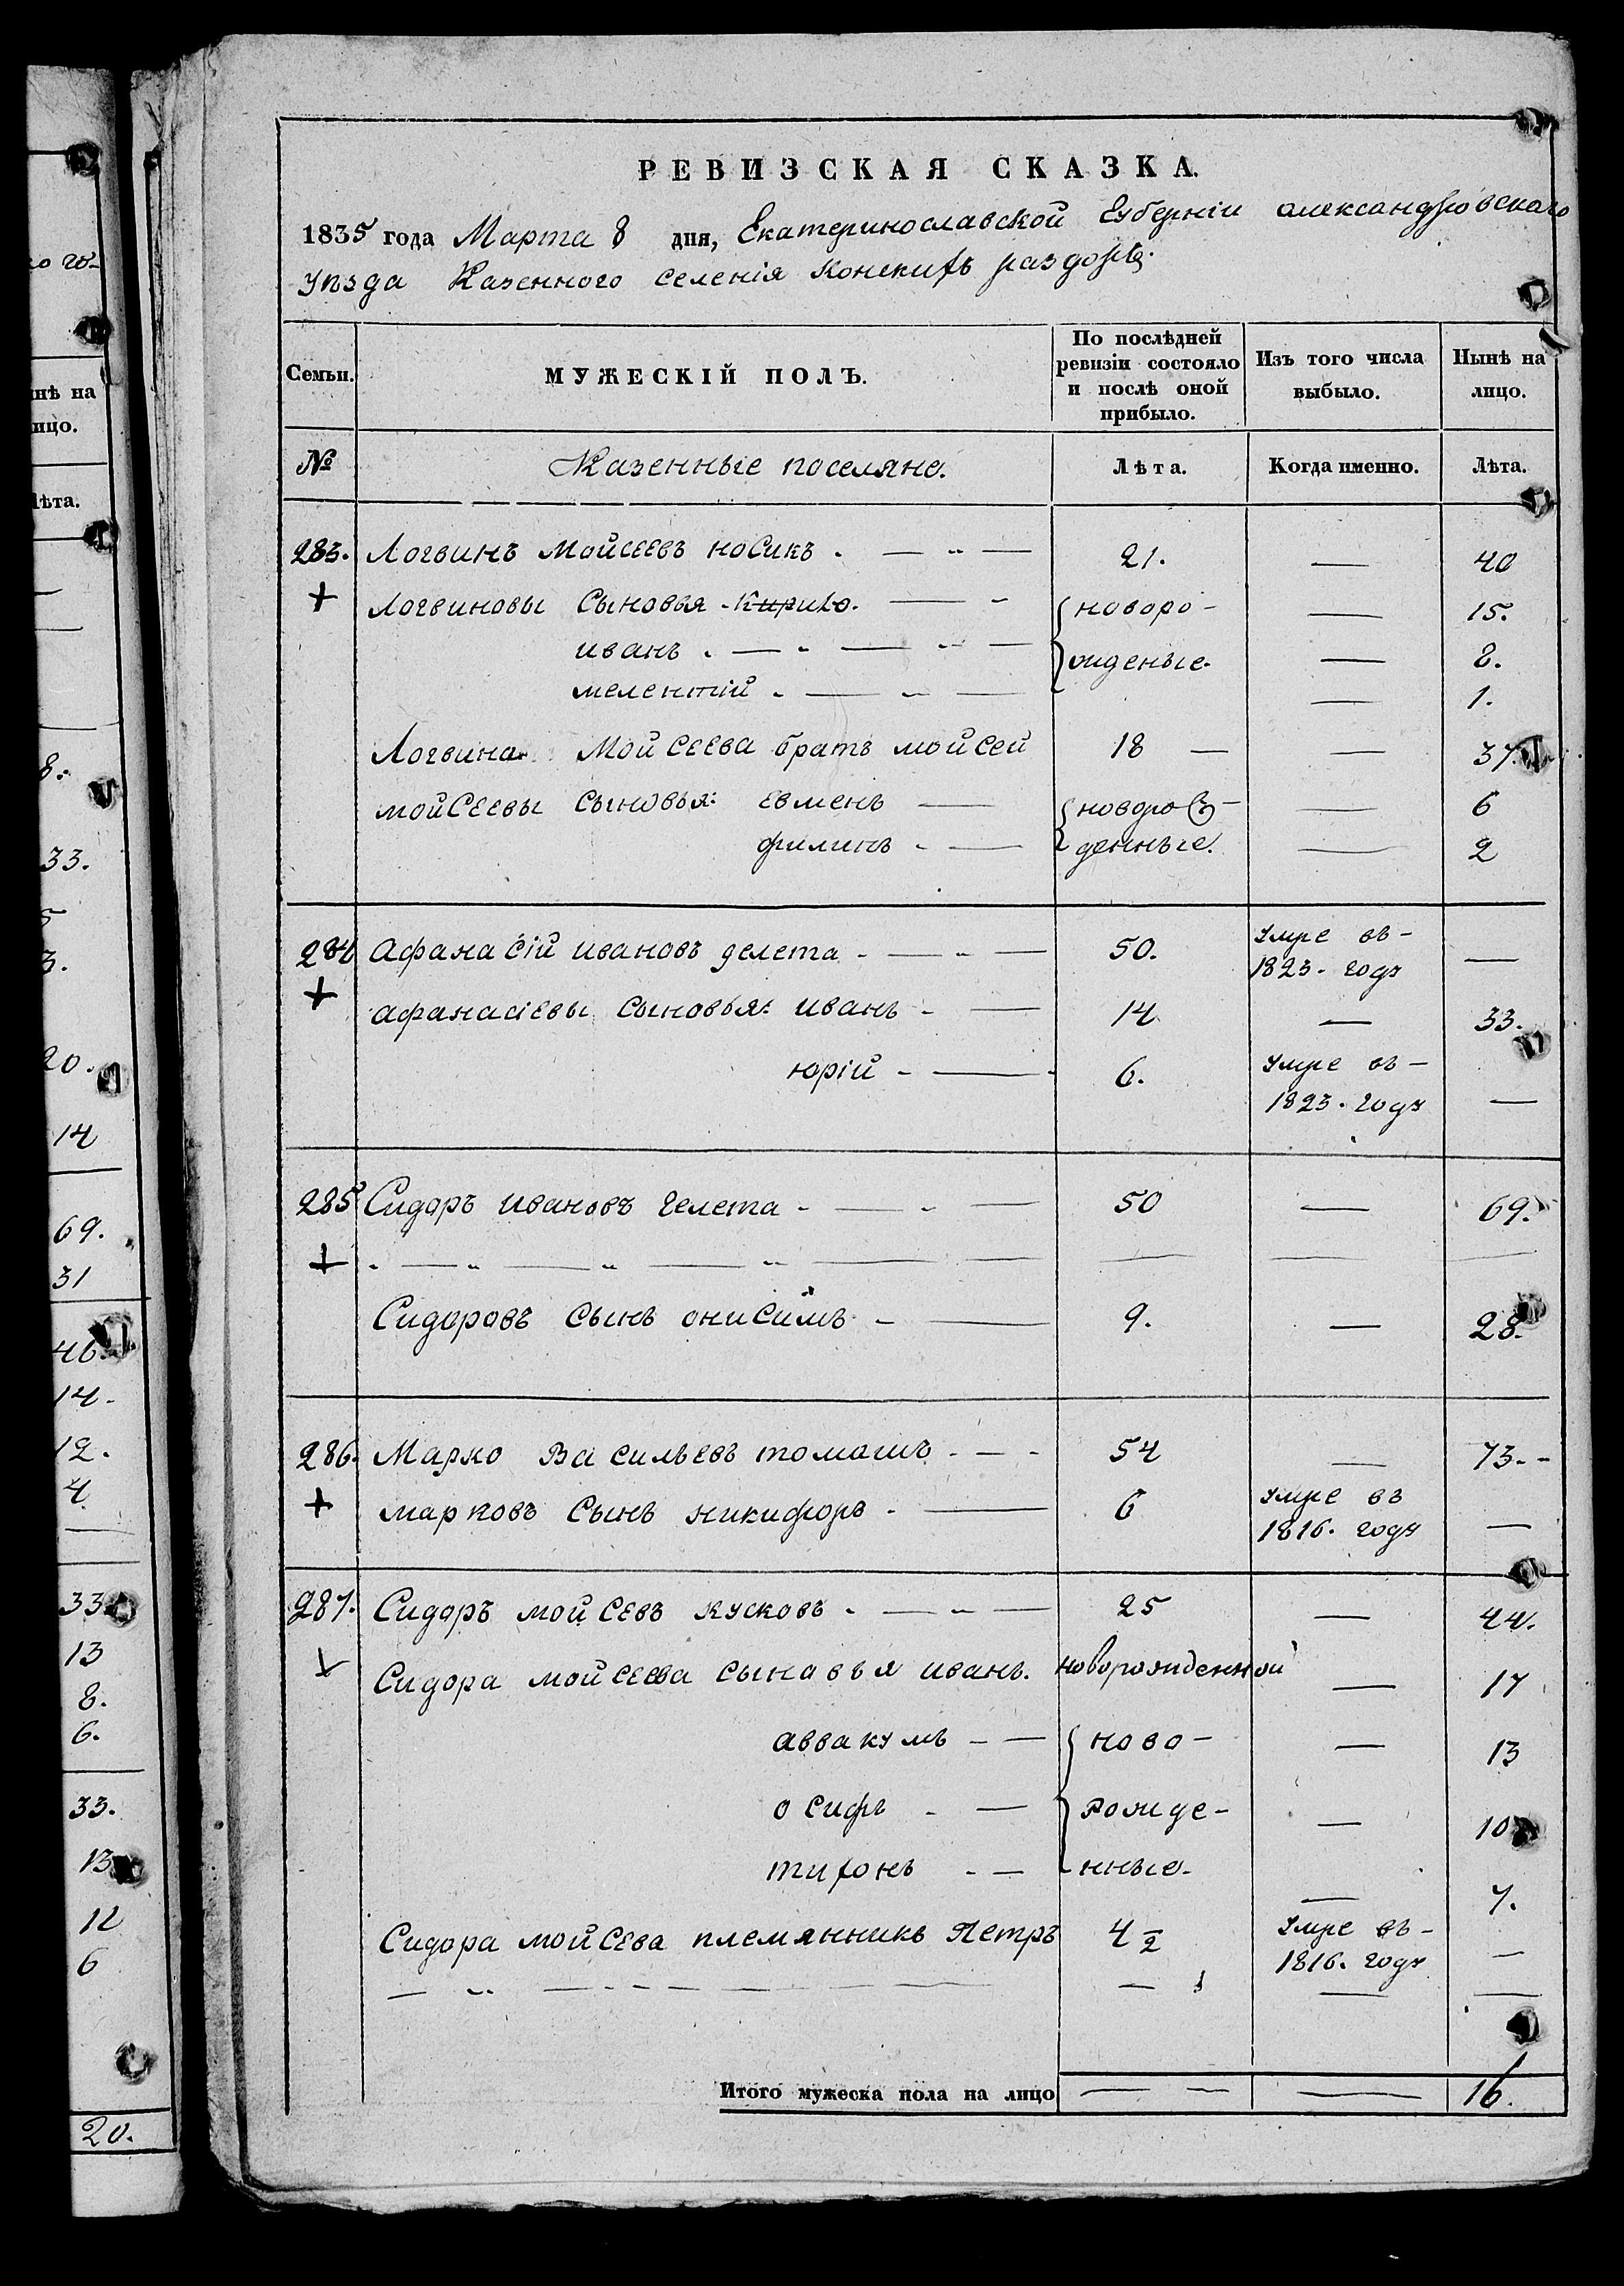 РЕВИЗСКАЯ СКАЗКА.
1835 года Марта 8 дня, Екатеринославской Губерніи александровского
уѣзда Казенного селенія Конскихъ раздоръ.
Семьи. МУЖЕСКІЙ ПОЛЪ. По послѣдней ревизіи состояло и послѣ оной прибыло. Изъ того числа выбыло. Нынѣ на лицо.
№ Казенные поселяне. Лѣта. Когда именно. Лѣта.
283. Логвинъ Мойсеевъ носикъ 21. — 40
+ логвиновы сыновья кирило. { новоро- — 15.
иванъ жденые. — 8.
мелентій — 1.
Логвина Мойсеева братъ мойсей 18 — — 37.
мойсеевы сыновья: евменъ { новорож- — 6
филипъ денные. — 2
284 афанасій ивановъ делета 50. умре въ 1823. году —
+ афанасіевы сыновья: иванъ 14 — 33.
юрій 6. умре въ 1823. году —
285 Сидоръ ивановъ гелета 50 — 69.
+
Сидоровъ сынъ онисимъ 9. — 28.
286. Марко Васильевъ томашъ 54 — 73.
+ марковъ сынъ никифоръ 6 умре въ 1816. году —
287. Сидоръ мойсевъ кусковъ 25 — 44.
+ Сидора мойсеева сыновья иванъ. новорожденной — 17
аввакумъ { ново- — 13
осифъ рожде- — 10
тихонъ нные. — 7.
Сидора мойсева племянникъ Петръ 4 1/2 умре въ 1816. году —
Итого мужеска пола на лицо — — 16.
нѣ на
ицо.
ѣта.
8.
33.
5
3.
20.
14
69.
31
46.
14.
12.
4
33.
13
8.
6.
33.
13
12
6
20.